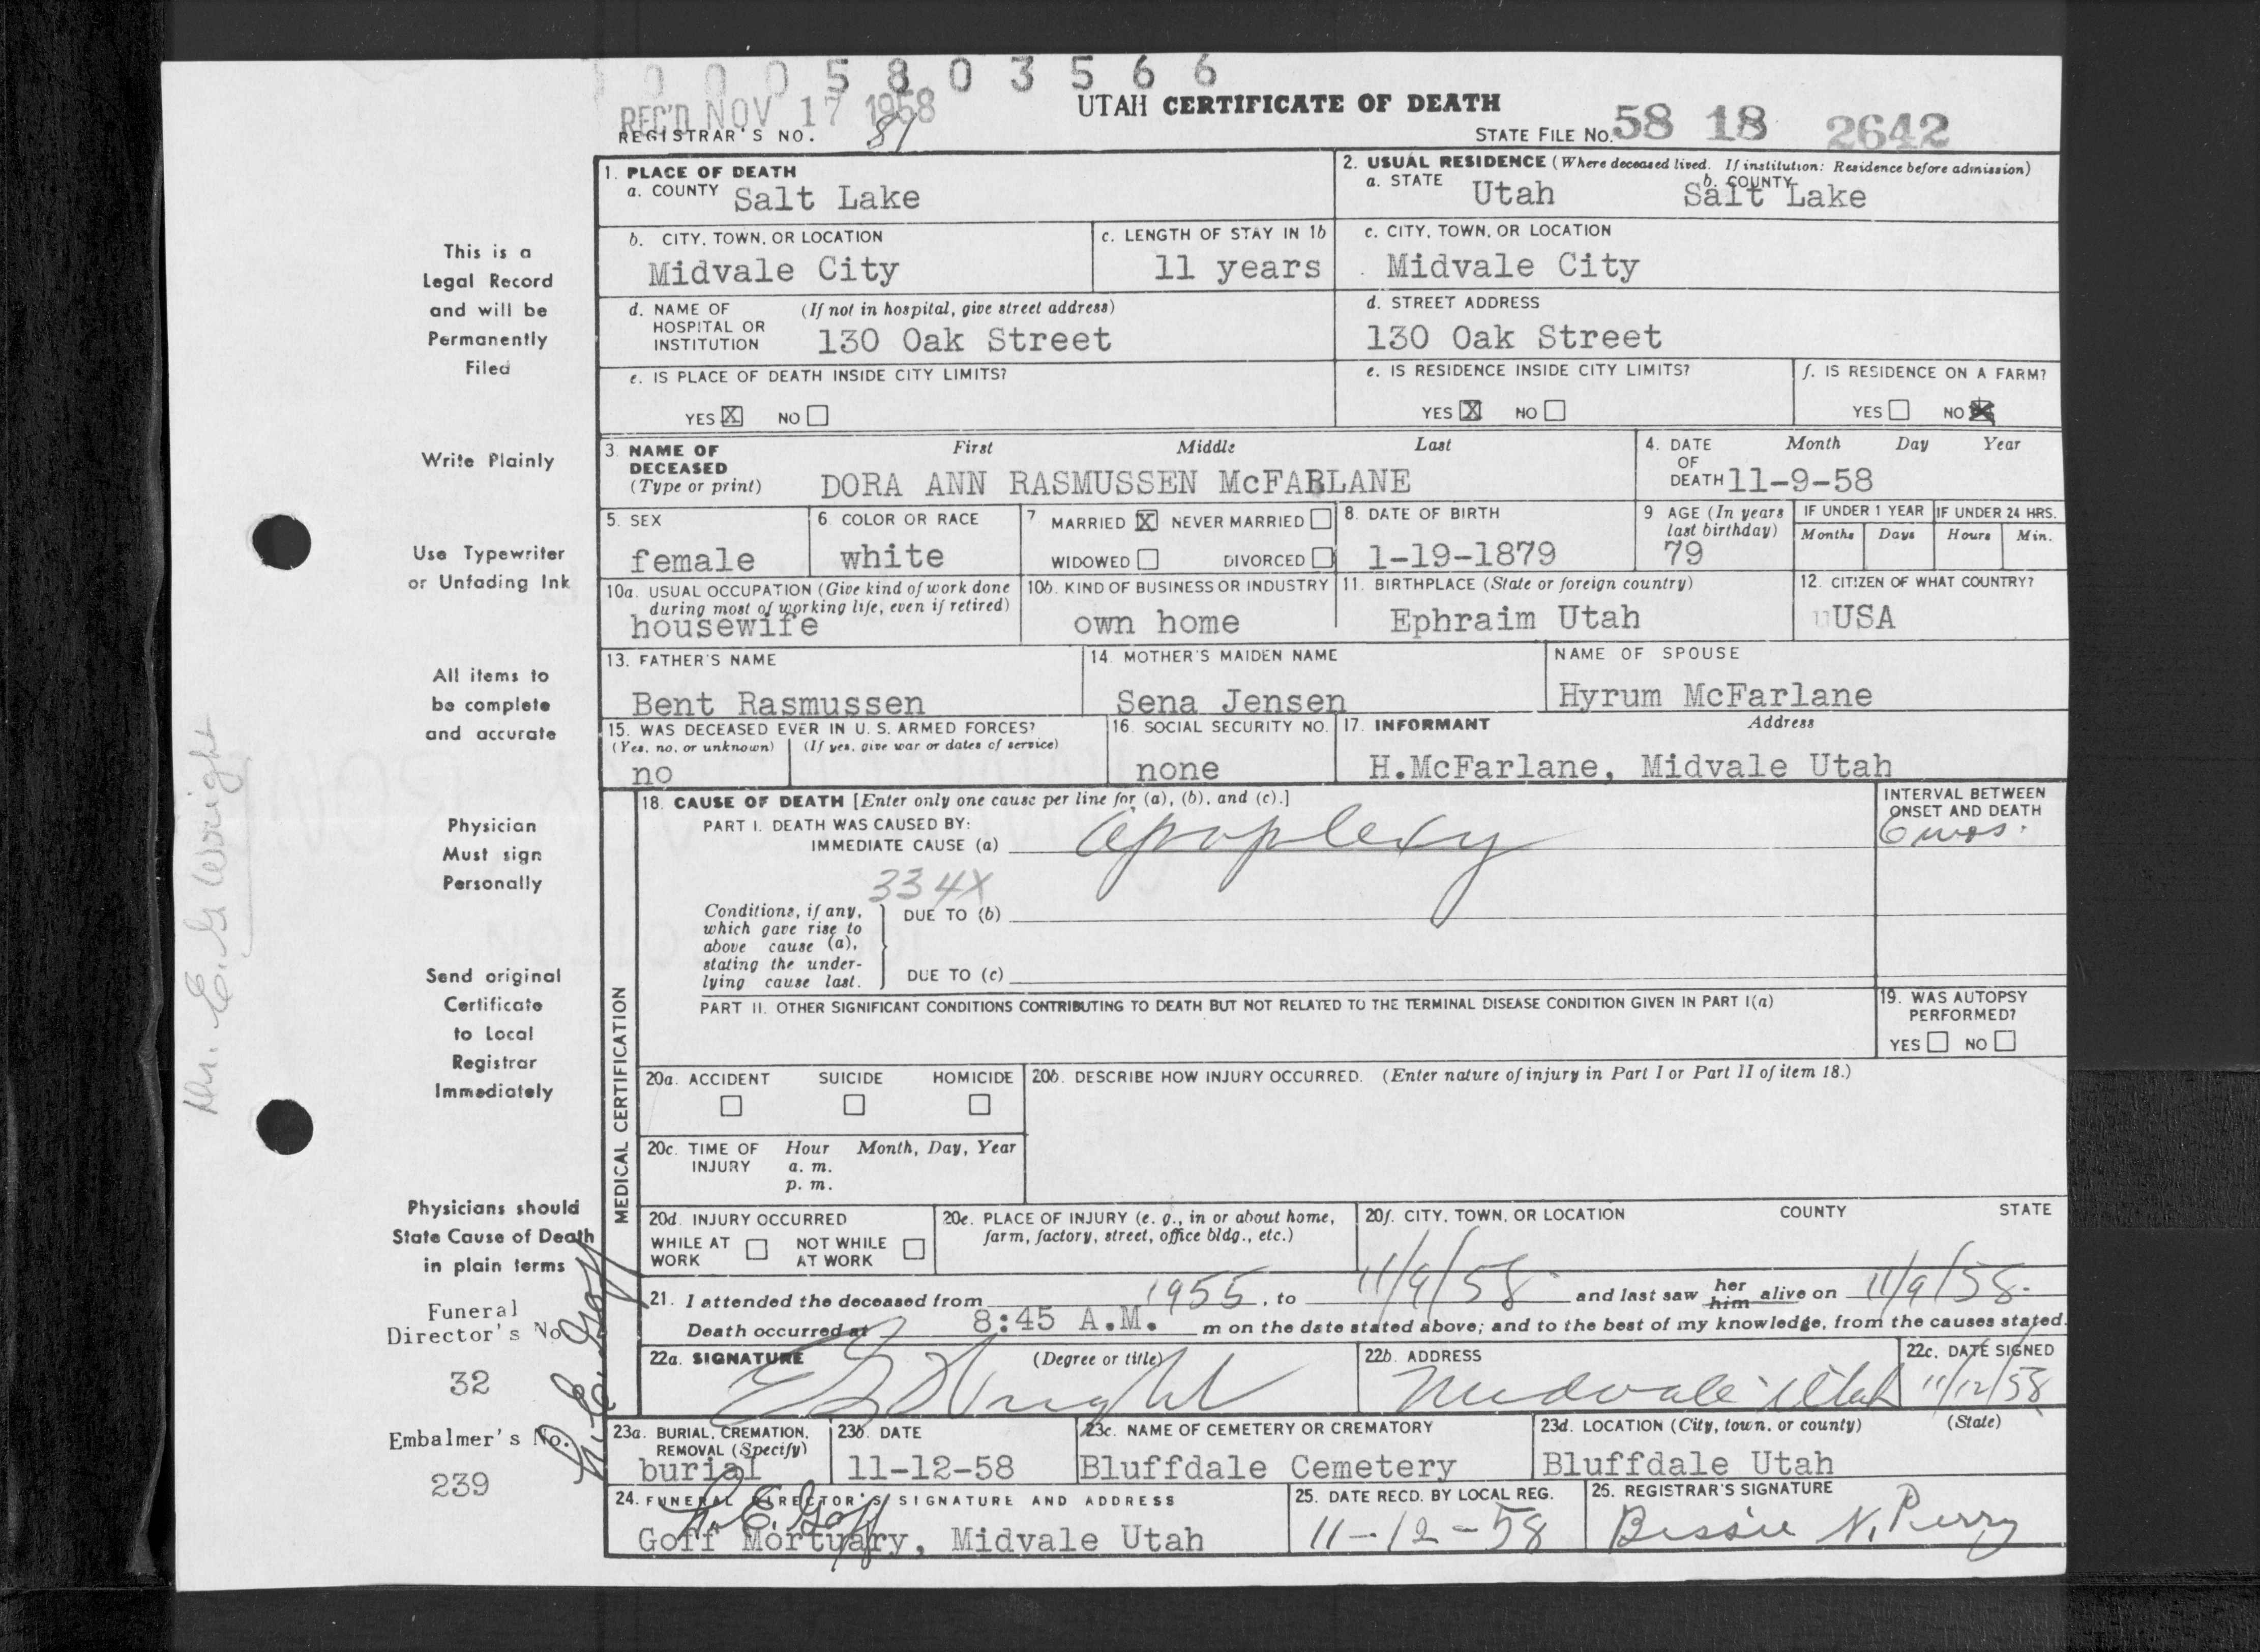 0005803566
REC'D NOV 17 1958
UTAH CERTIFICATE OF DEATH
REGISTRAR'S NO. 81
STATE FILE NO. 58 18 2642
This is a
Legal Record
and will be
Permanently
Filed
Write Plainly
Use Typewriter
or Unfading Ink
All items to
be complete
and accurate
Physician
Must sign
Personally
Send original
Certificate
to Local
Registrar
Immediately
Physicians should
State Cause of Death
in plain terms
Funeral
Director's No.
32
Embalmer's No.
239
R. E. Goff
Dr. E. G. Wright
1. PLACE OF DEATH
a. COUNTY Salt Lake
2. USUAL RESIDENCE (Where deceased lived. If institution: Residence before admission)
a. STATE Utah b. COUNTY Salt Lake
b. CITY, TOWN, OR LOCATION
Midvale City
c. LENGTH OF STAY IN 1b
11 years
c. CITY, TOWN, OR LOCATION
Midvale City
d. NAME OF HOSPITAL OR INSTITUTION (If not in hospital, give street address)
130 Oak Street
d. STREET ADDRESS
130 Oak Street
e. IS PLACE OF DEATH INSIDE CITY LIMITS?
YES X NO
e. IS RESIDENCE INSIDE CITY LIMITS?
YES X NO
f. IS RESIDENCE ON A FARM?
YES NO X
3. NAME OF DECEASED (Type or print) First Middle Last
DORA ANN RASMUSSEN McFARLANE
4. DATE OF DEATH Month Day Year
11-9-58
5. SEX
female
6. COLOR OR RACE
white
7 MARRIED X NEVER MARRIED
WIDOWED DIVORCED
8. DATE OF BIRTH
1-19-1879
9 AGE (In years last birthday)
79
IF UNDER 1 YEAR
Months Days
IF UNDER 24 HRS.
Hours Min.
10a. USUAL OCCUPATION (Give kind of work done during most of working life, even if retired)
housewife
10b. KIND OF BUSINESS OR INDUSTRY
own home
11. BIRTHPLACE (State or foreign country)
Ephraim Utah
12. CITIZEN OF WHAT COUNTRY?
uUSA
13. FATHER'S NAME
Bent Rasmussen
14. MOTHER'S MAIDEN NAME
Sena Jensen
NAME OF SPOUSE
Hyrum McFarlane
15. WAS DECEASED EVER IN U. S. ARMED FORCES?
(Yes, no, or unknown) (If yes, give war or dates of service)
no
16. SOCIAL SECURITY NO.
none
17. INFORMANT Address
H.McFarlane, Midvale Utah
MEDICAL CERTIFICATION
18. CAUSE OF DEATH [Enter only one cause per line for (a), (b), and (c).]
PART I. DEATH WAS CAUSED BY:
IMMEDIATE CAUSE (a) apoplexy
INTERVAL BETWEEN ONSET AND DEATH
6 mos.
334X
Conditions, if any, which gave rise to above cause (a), stating the underlying cause last.
DUE TO (b)
DUE TO (c)
PART II. OTHER SIGNIFICANT CONDITIONS CONTRIBUTING TO DEATH BUT NOT RELATED TO THE TERMINAL DISEASE CONDITION GIVEN IN PART I(a)
19. WAS AUTOPSY PERFORMED?
YES NO
20a. ACCIDENT SUICIDE HOMICIDE
20b. DESCRIBE HOW INJURY OCCURRED. (Enter nature of injury in Part I or Part II of item 18.)
20c. TIME OF INJURY Hour Month, Day, Year
a. m.
p. m.
20d. INJURY OCCURRED
WHILE AT WORK NOT WHILE AT WORK
20e. PLACE OF INJURY (e. g., in or about home, farm, factory, street, office bldg., etc.)
20f. CITY, TOWN, OR LOCATION COUNTY STATE
21. I attended the deceased from 1955, to 11/9/58 and last saw her him alive on 11/9/58.
Death occurred at 8:45 A.M. m on the date stated above; and to the best of my knowledge, from the causes stated.
22a. SIGNATURE (Degree or title)
E G Wright
22b. ADDRESS
Midvale Utah
22c. DATE SIGNED
11/12/58
23a. BURIAL, CREMATION, REMOVAL (Specify)
burial
23b. DATE
11-12-58
23c. NAME OF CEMETERY OR CREMATORY
Bluffdale Cemetery
23d. LOCATION (City, town, or county) (State)
Bluffdale Utah
24. FUNERAL DIRECTOR'S SIGNATURE AND ADDRESS
R. E. Goff
Goff Mortuary, Midvale Utah
25. DATE RECD. BY LOCAL REG.
11-12-58
25. REGISTRAR'S SIGNATURE
Bessie N. Perry